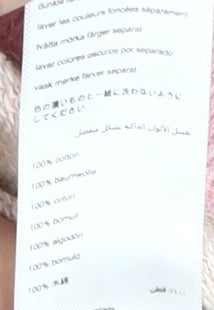 dunkle
laver les couleurs foncées séparément
tvätta mörka färger separat
lavar colores oscuros por separado
vask mørke farver separat
色の濃いものと一緒に洗わないように
してください
غسل الألوان الغامقة بشكل منفصل
100% cotton
100% baumwolle
100% coton
100% bomull
100% algodón
100% bomuld
100% 木綿
١٠٠٪ قطن